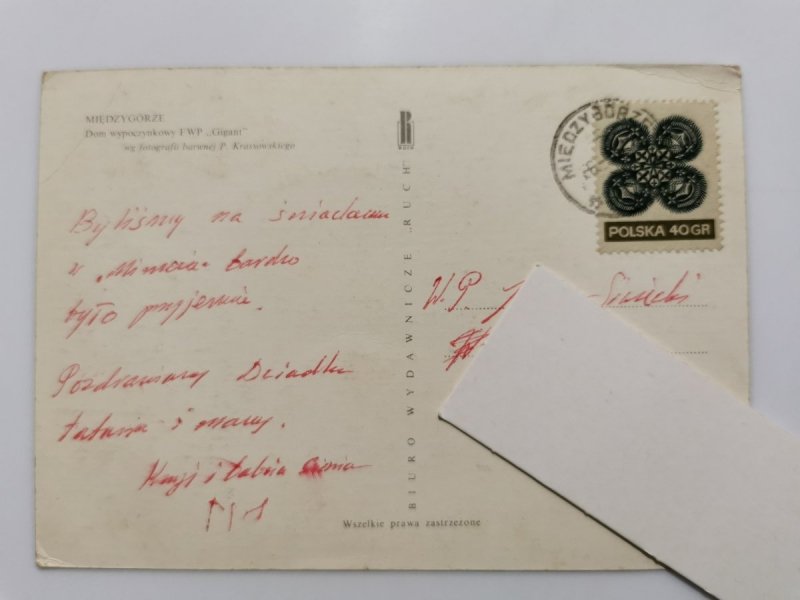 MIĘDZYGÓRZE
Dom wypoczynkowy FWP „Gigant”
wg fotografii barwnej P. Krassowskiego
RUCH
MIĘDZYGÓRZE
POLSKA 40 GR
Byliśmy na śniadaniu
w bardzo
było przyjemnie.
Pozdrawiamy Dziadka
tatusia i mamy.
i babcia
BIURO WYDAWNICZE „RUCH”
W.P.
Wszelkie prawa zastrzeżone